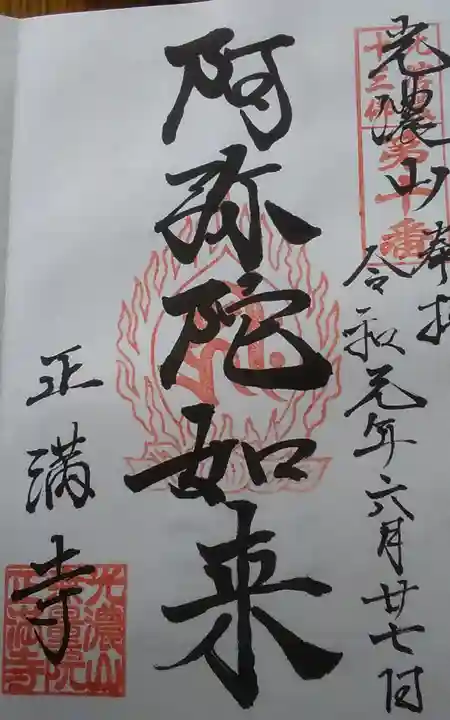 奉拝
令和元年六月廿七日
光濃山
第十番
阿弥陀如来
正満寺
光濃山
無量院